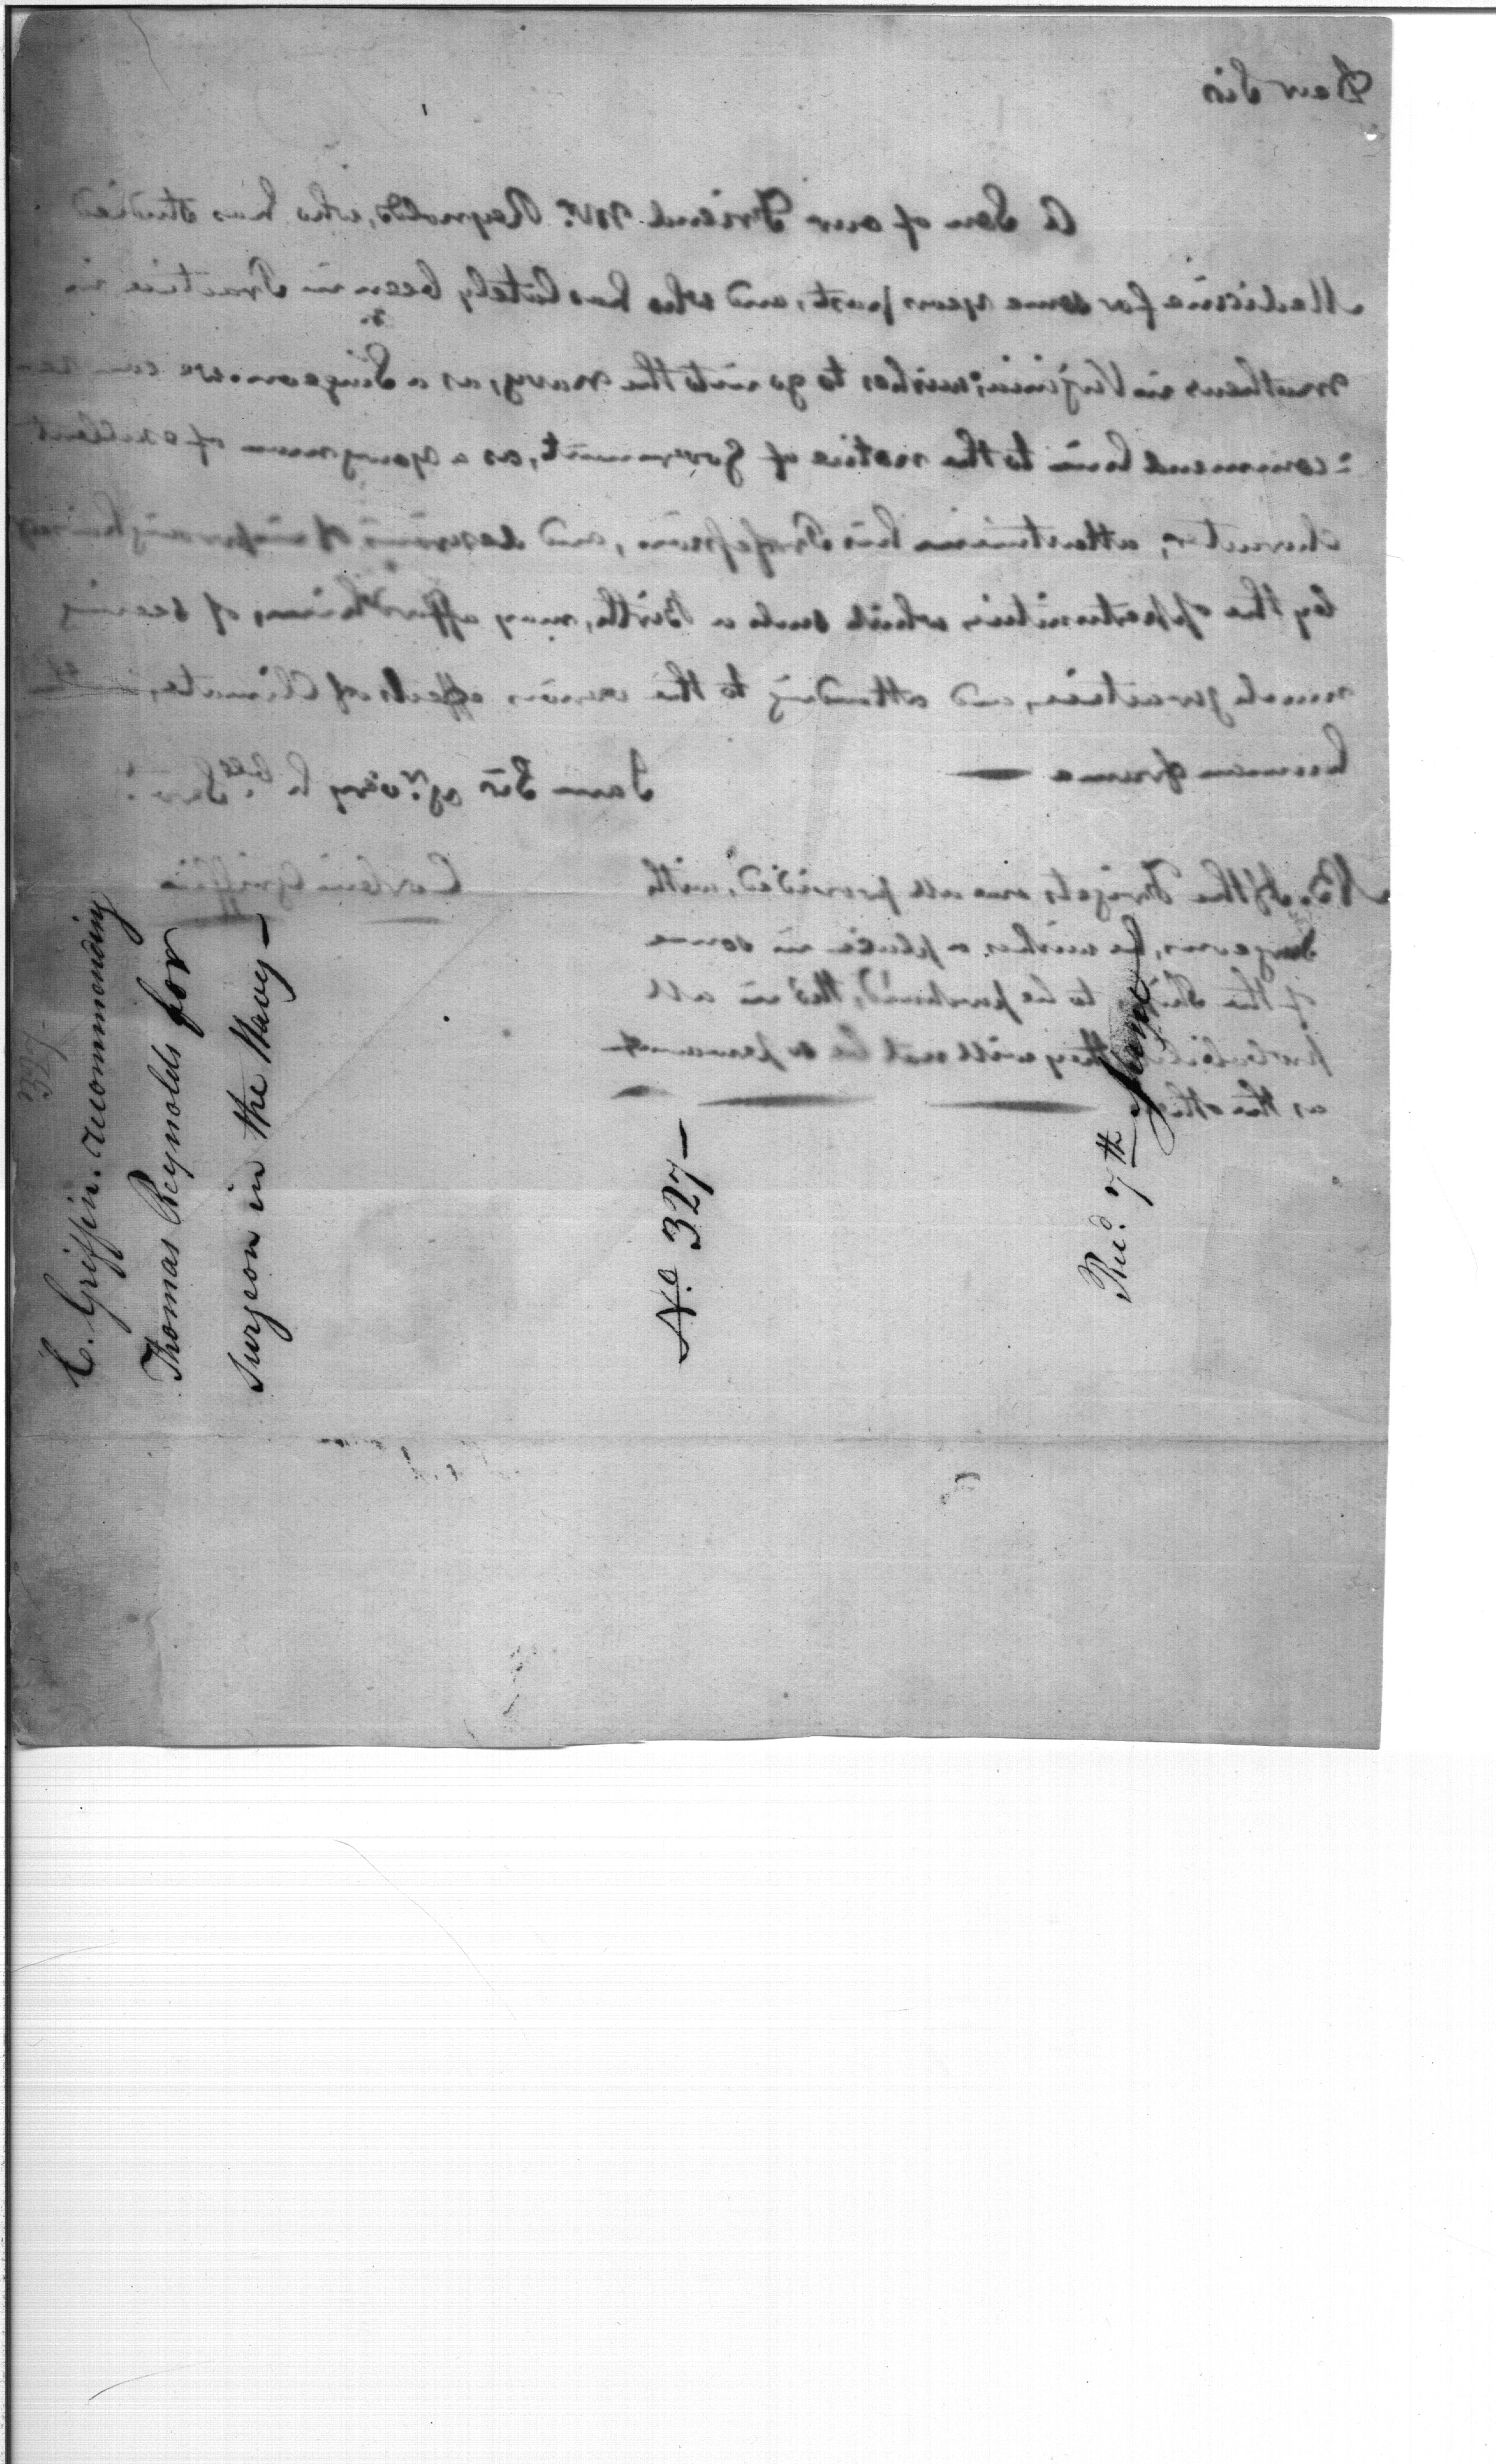 C. Griffin. recommending
Thomas Reynolds for
surgeon in the Navy—
No. 327—
Recd. 7th June
327
Dear Sir
A Son of our Friend Mr. Reynolds, who has studied
Medicine for some years past, and who has lately been in Practice in
in Virginia; wishes to go into the navy, as a Surgeon. we can re
=commend him to the notice of Government, as a young man of excellent
character, attentive in his Profession, and desirous of improving
by the opportunities which such a Birth, may afford him, of seeing
much practice, and attending to the various effects of Climate,
human frame —
I am Sir yr. very hble. Servt.
Corbin Griffin
NB. If the Frigates are all provided, with
Surgeons, he wishes a place in some
of the Ships to be purchased, tho' in all
probability they will not be so permanent
as the other